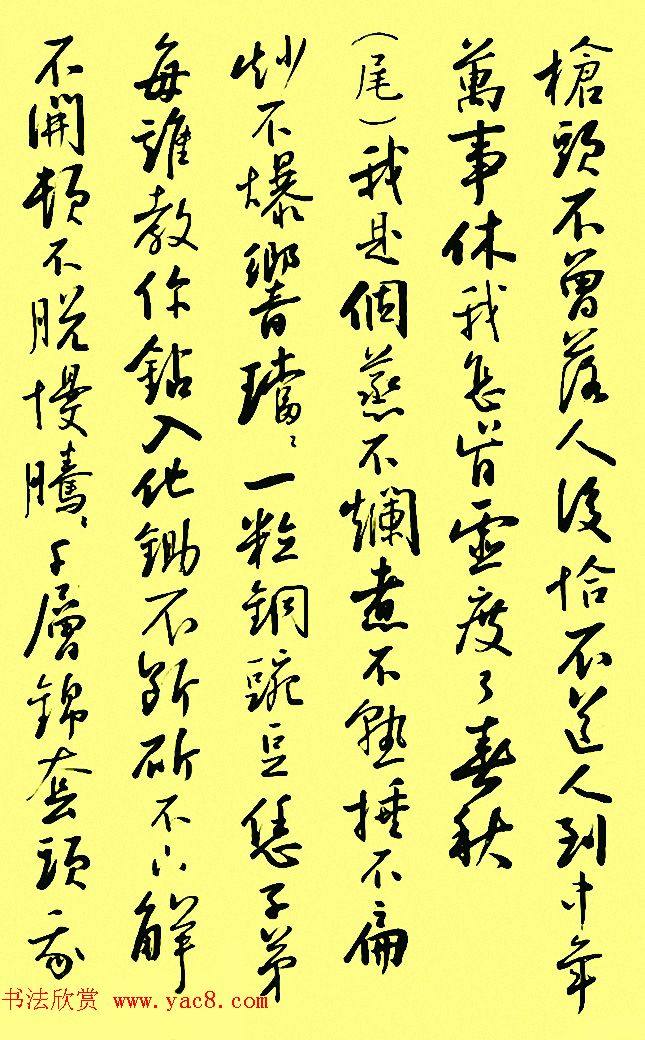 槍頭不曾落人後恰不道人到中年
萬事休我怎肯虛度了春秋
（尾）我是個蒸不爛煮不熟捶不扁
炒不爆響璫〻一粒銅豌豆恁子弟
每誰教你鉆入他鋤不斷斫不下解
不開頓不脫慢騰〻千層錦套頭我
书法欣赏 www.yac8.com